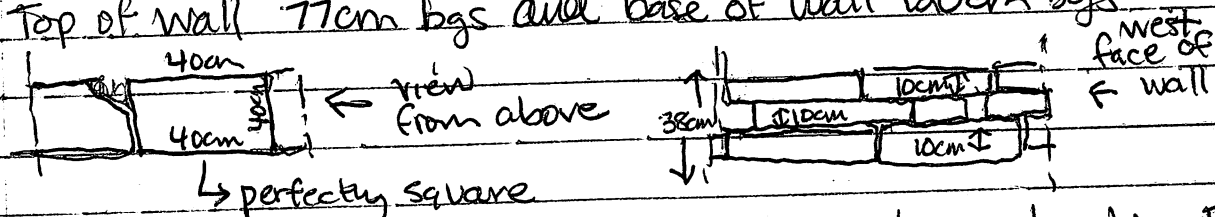 Top of wall 77cm bgs and base of wall bgs
40cm
40cm
40cm
← view from above
↳ perfectly square
38cm
10cm
10cm
10cm
← west face of wall